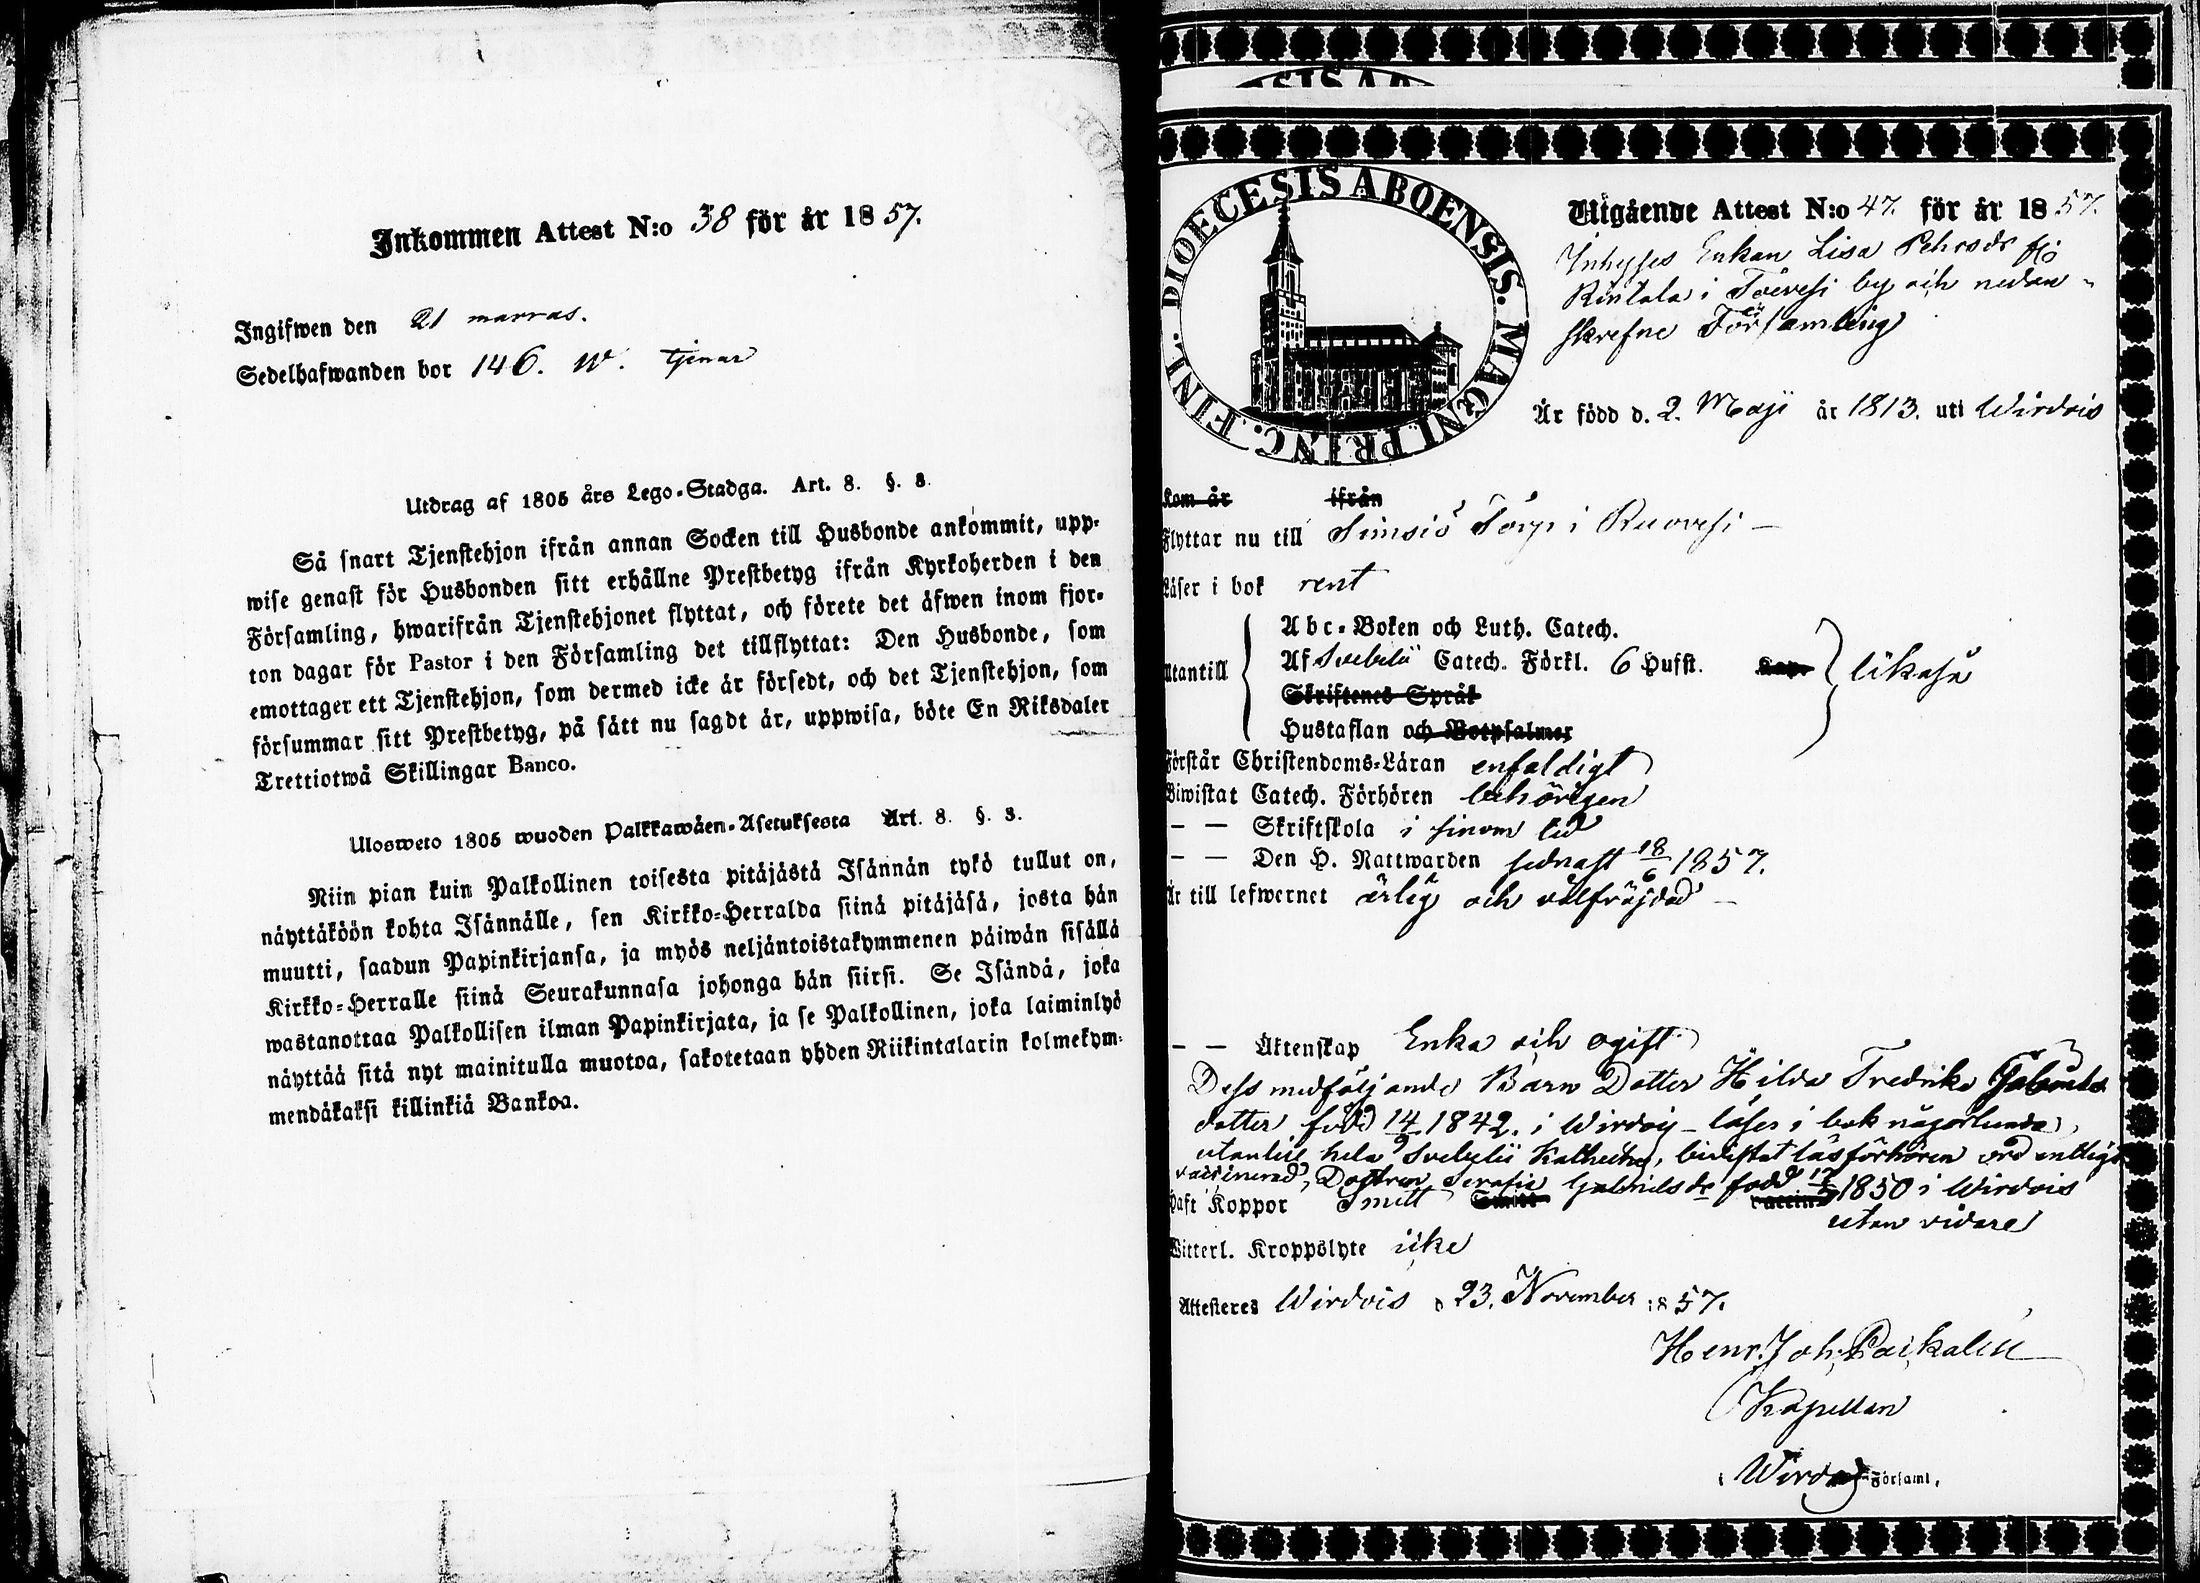 Inkommen Attest N:o 38 för år 1857.
Ingifwen den 21 marras.
Sedelhafwanden bor 146. W. tjenar
Utdrag af 1805 års Lego-Stadga. Art. 8. §. 3.
Så snart Tjenstehjon ifrån annan Socken till Husbonde ankommit, upp-
wise genast för Husbonden sitt erhållne Prestbetyg ifrån Kyrkoherden i den
Församling, hwarifrån Tjenstehjonet flyttat, och förete det äfwen inom fjor-
ton dagar för Pastor i den Församling det tillflyttat: Den Husbonde, som
emottager ett Tjenstehjon, som dermed icke är försedt, och det Tjenstehjon, som
försummar sitt Prestbetyg, på sätt nu sagdt är, uppwisa, böte En Riksdaler
Trettiotwå Skillingar Banco.
Ulosweto 1805 wuoden Palkkawäen-Asetuksesta Art. 8. §. 3.
Niin pian kuin Palkollinen toisesta pitäjästä Isännän tykö tullut on,
näyttäköön kohta Isännälle, sen Kirkko-Herralda siinä pitäjäsä, josta hän
muutti, saadun Papinkirjansa, ja myös neljäntoistakymmenen päiwän sisällä
Kirkko-Herralle siinä Seurakunnasa johonga hän siirsi. Se Isändä, joka
wastanottaa Palkollisen ilman Papinkirjata, ja se Palkollinen, joka laiminlyö
näyttää sitä nyt mainitulla muotoa, sakotetaan yhden Riikintalarin kolmekym-
mendäkaksi killinkiä Bankoa.
DIOECESIS ABOENSIS. MAGNI PRINC. FINL.
Utgående Attest N:o 47. för år 1857.
Inhyses Enkan Lisa Pehrsdr
Rintala i Toivesi by och nedan-
skrefne Församling
Är född d. 2. Maji år 1813. uti Wirdois
Kom år ifrån
Flyttar nu till Simsiö Torp i Ruovesi
Läser i bok rent
Utantill
Abc-Boken och Luth. Catech.
Af Svebelii Catech. Förkl. 6 Hufst. Kap. likaså
Skriftenes Språk
Hustaflan och Botpsalmer
Förstår Christendoms-Läran enfaldigt
Biwistat Catech. Förhören behörigen
- - Skriftskola i sinom tid
- - Den H. Nattwarden sednast 18/6 1857.
Är till lefwernet ärlig och välfräjdad
- - Äktenskap Enka och ogift
Dess medföljande Barn Dotter Hilda Fredrika Gabriels
dotter född 14/9 1842. i Wirdois läser i bok någorlunda,
utantill hela Svebelii Katheches, bivistat läsförhören ordentligt
vaccinerad, Dottren Serafia Gabrielsdr född 1850 i Wirdois
utan vidare
Haft Koppor Smitt Smitt vaccin
Witterl. Kroppslyte icke
Attesteres Wirdois d 23. November 1857.
Henr. Joh.
Kapellan
i Wirdois Församl.